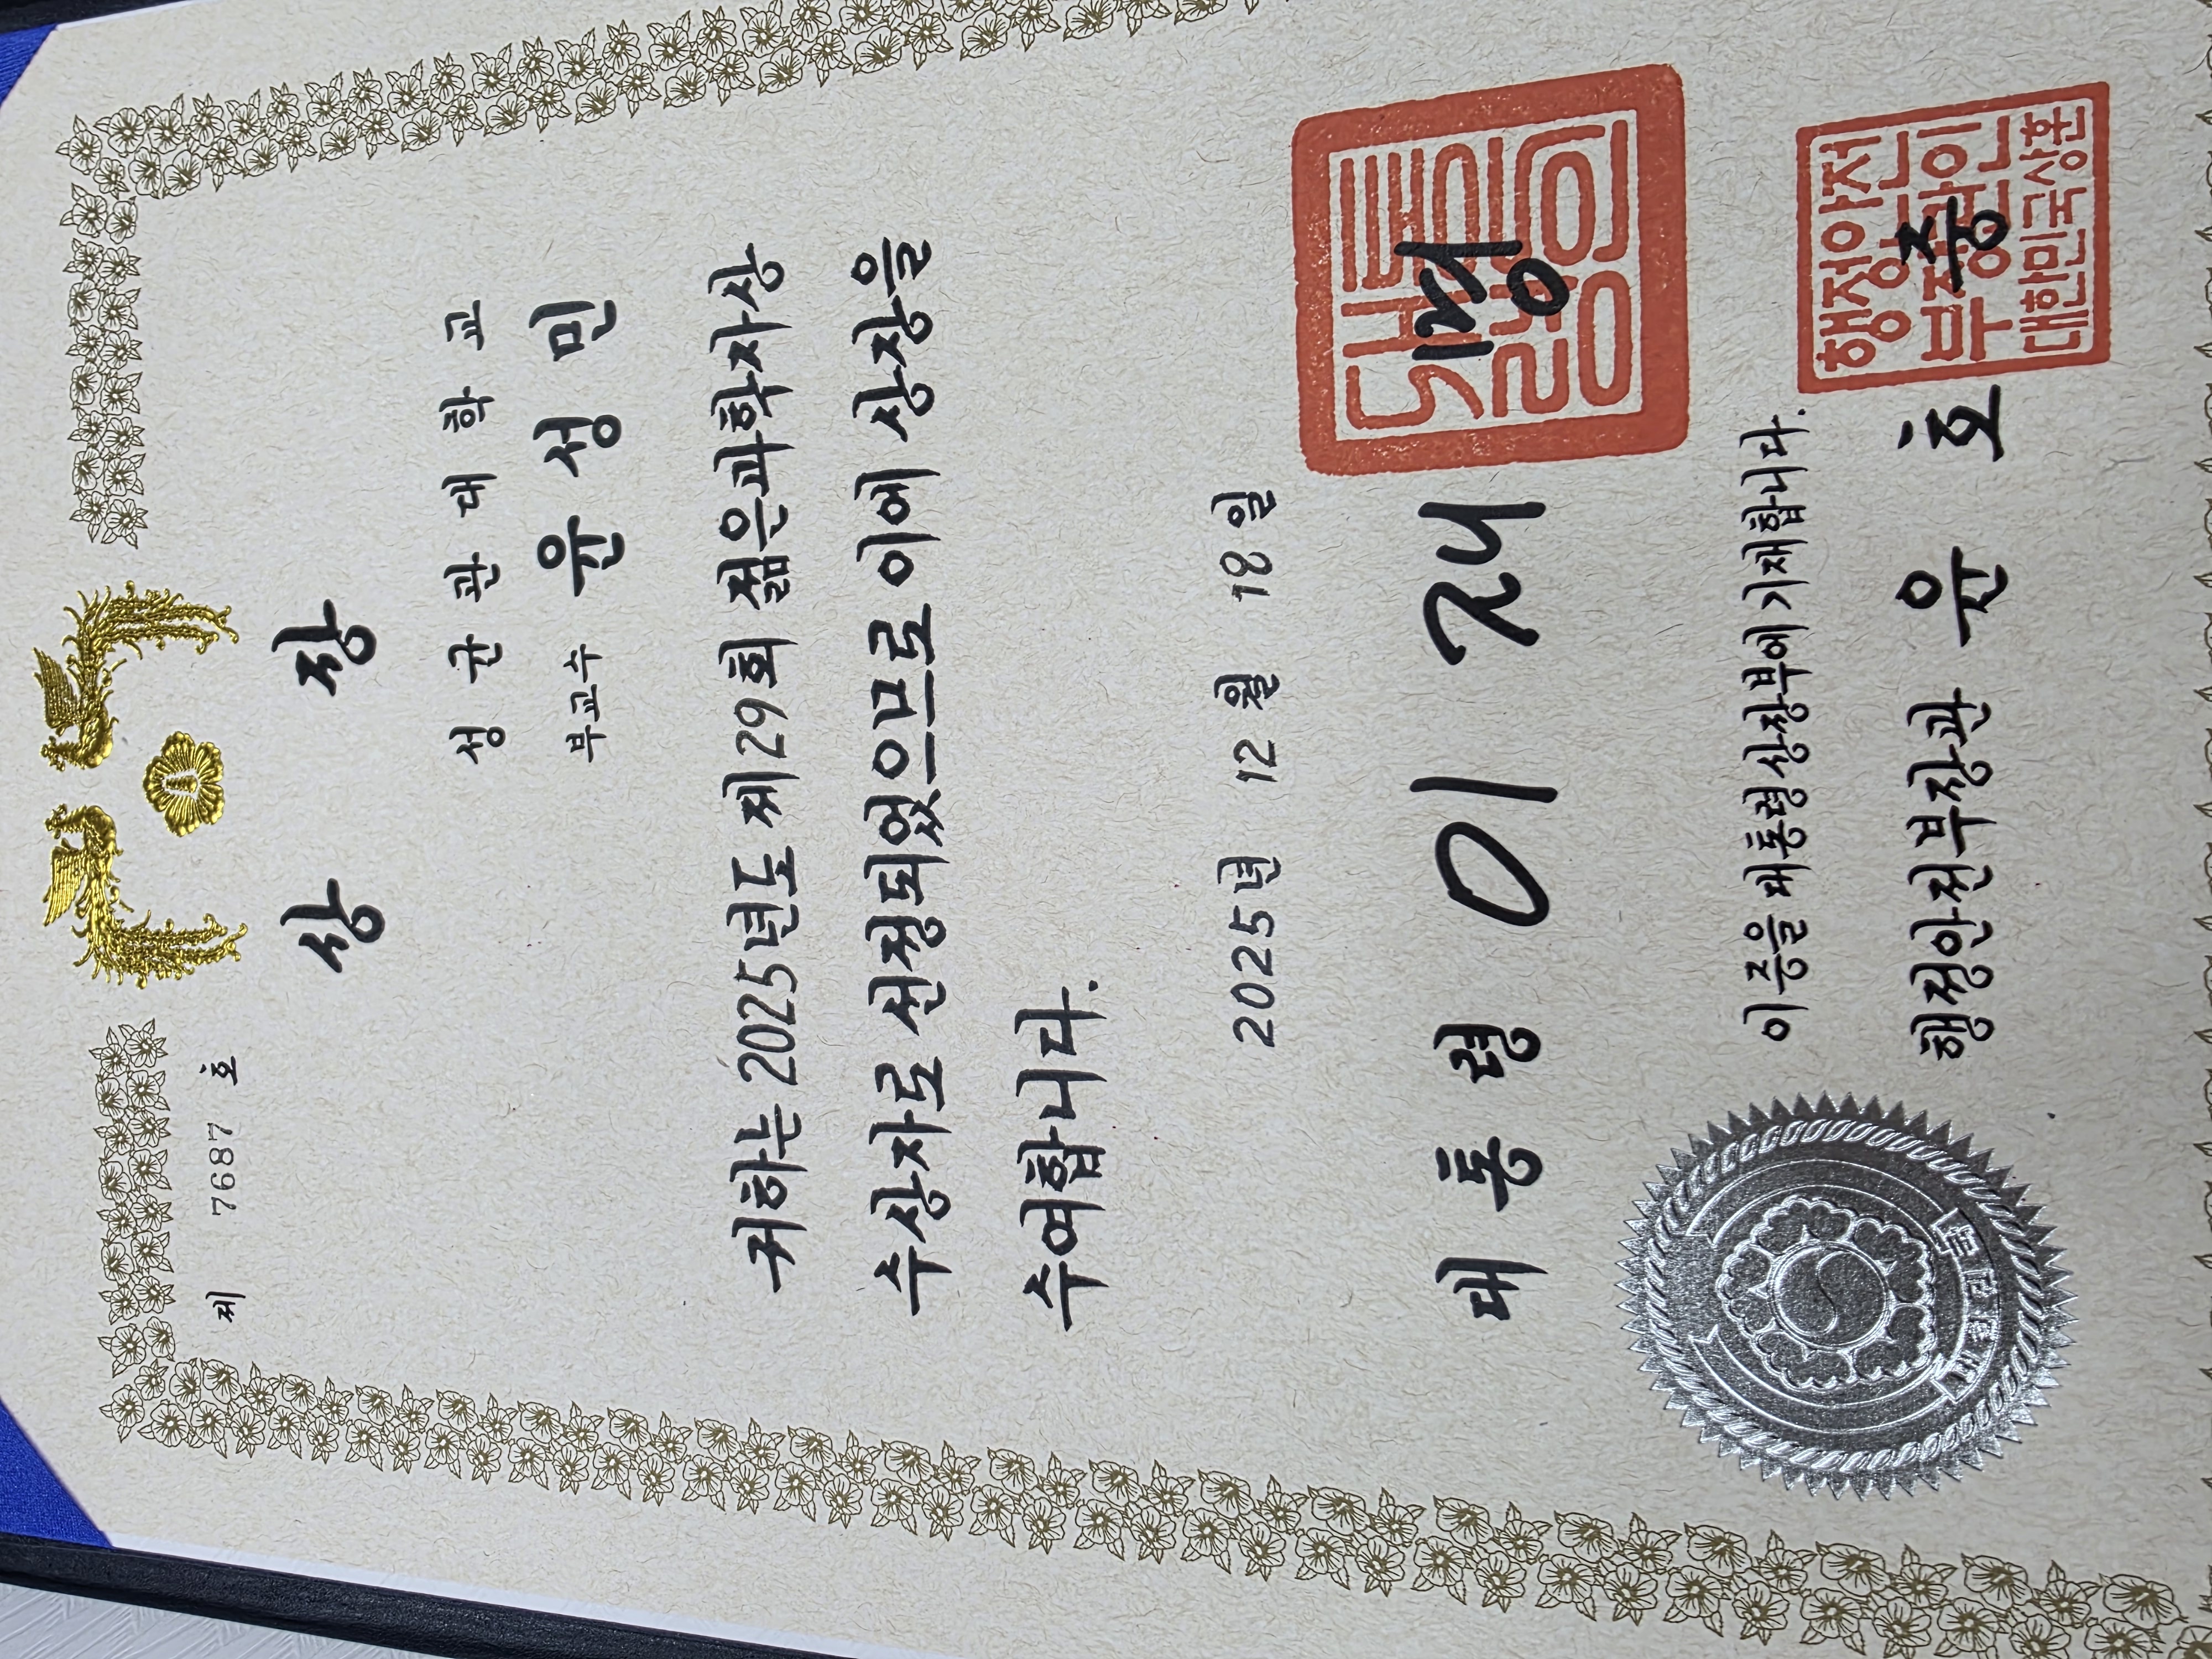 제 7687 호
상 장
성 균 관 대 학 교
부교수 윤 성 민
귀하는 2025년도 제29회 젊은과학자상
수상자로 선정되었으므로 이에 상장을
수여합니다.
2025년 12월 18일
대 통 령 이 재 명
대통령인
이 증을 대통령상장부에 기재합니다.
행정안전부장관 윤 호 중
행정안전
부장관인
대한민국상훈
대한민국